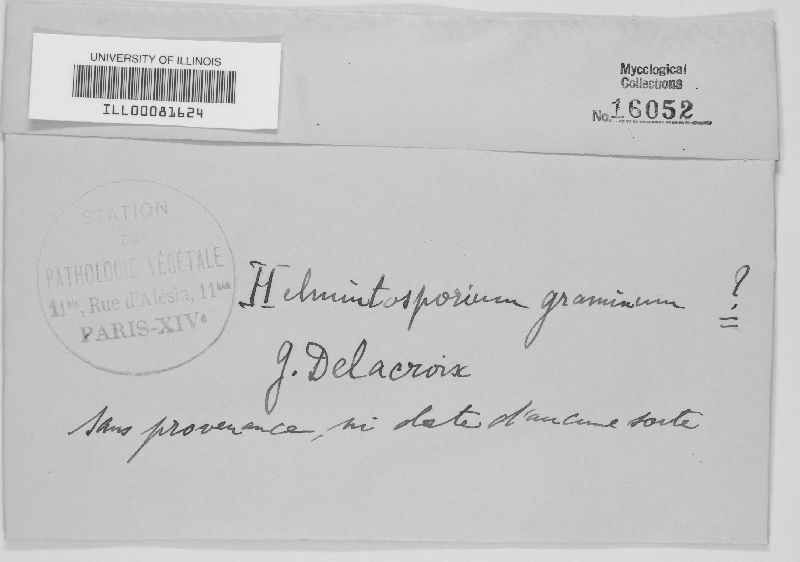 UNIVERSITY OF ILLINOIS
ILL00081624
Mycological
Collections
No. 16052
STATION
DE
PATHOLOGIE VÉGÉTALE
11bis, Rue d'Alésia, 11bis
PARIS-XIVe
Helmintosporium graminum ?
G. Delacroix
sans provenance, ni date d'aucune sorte